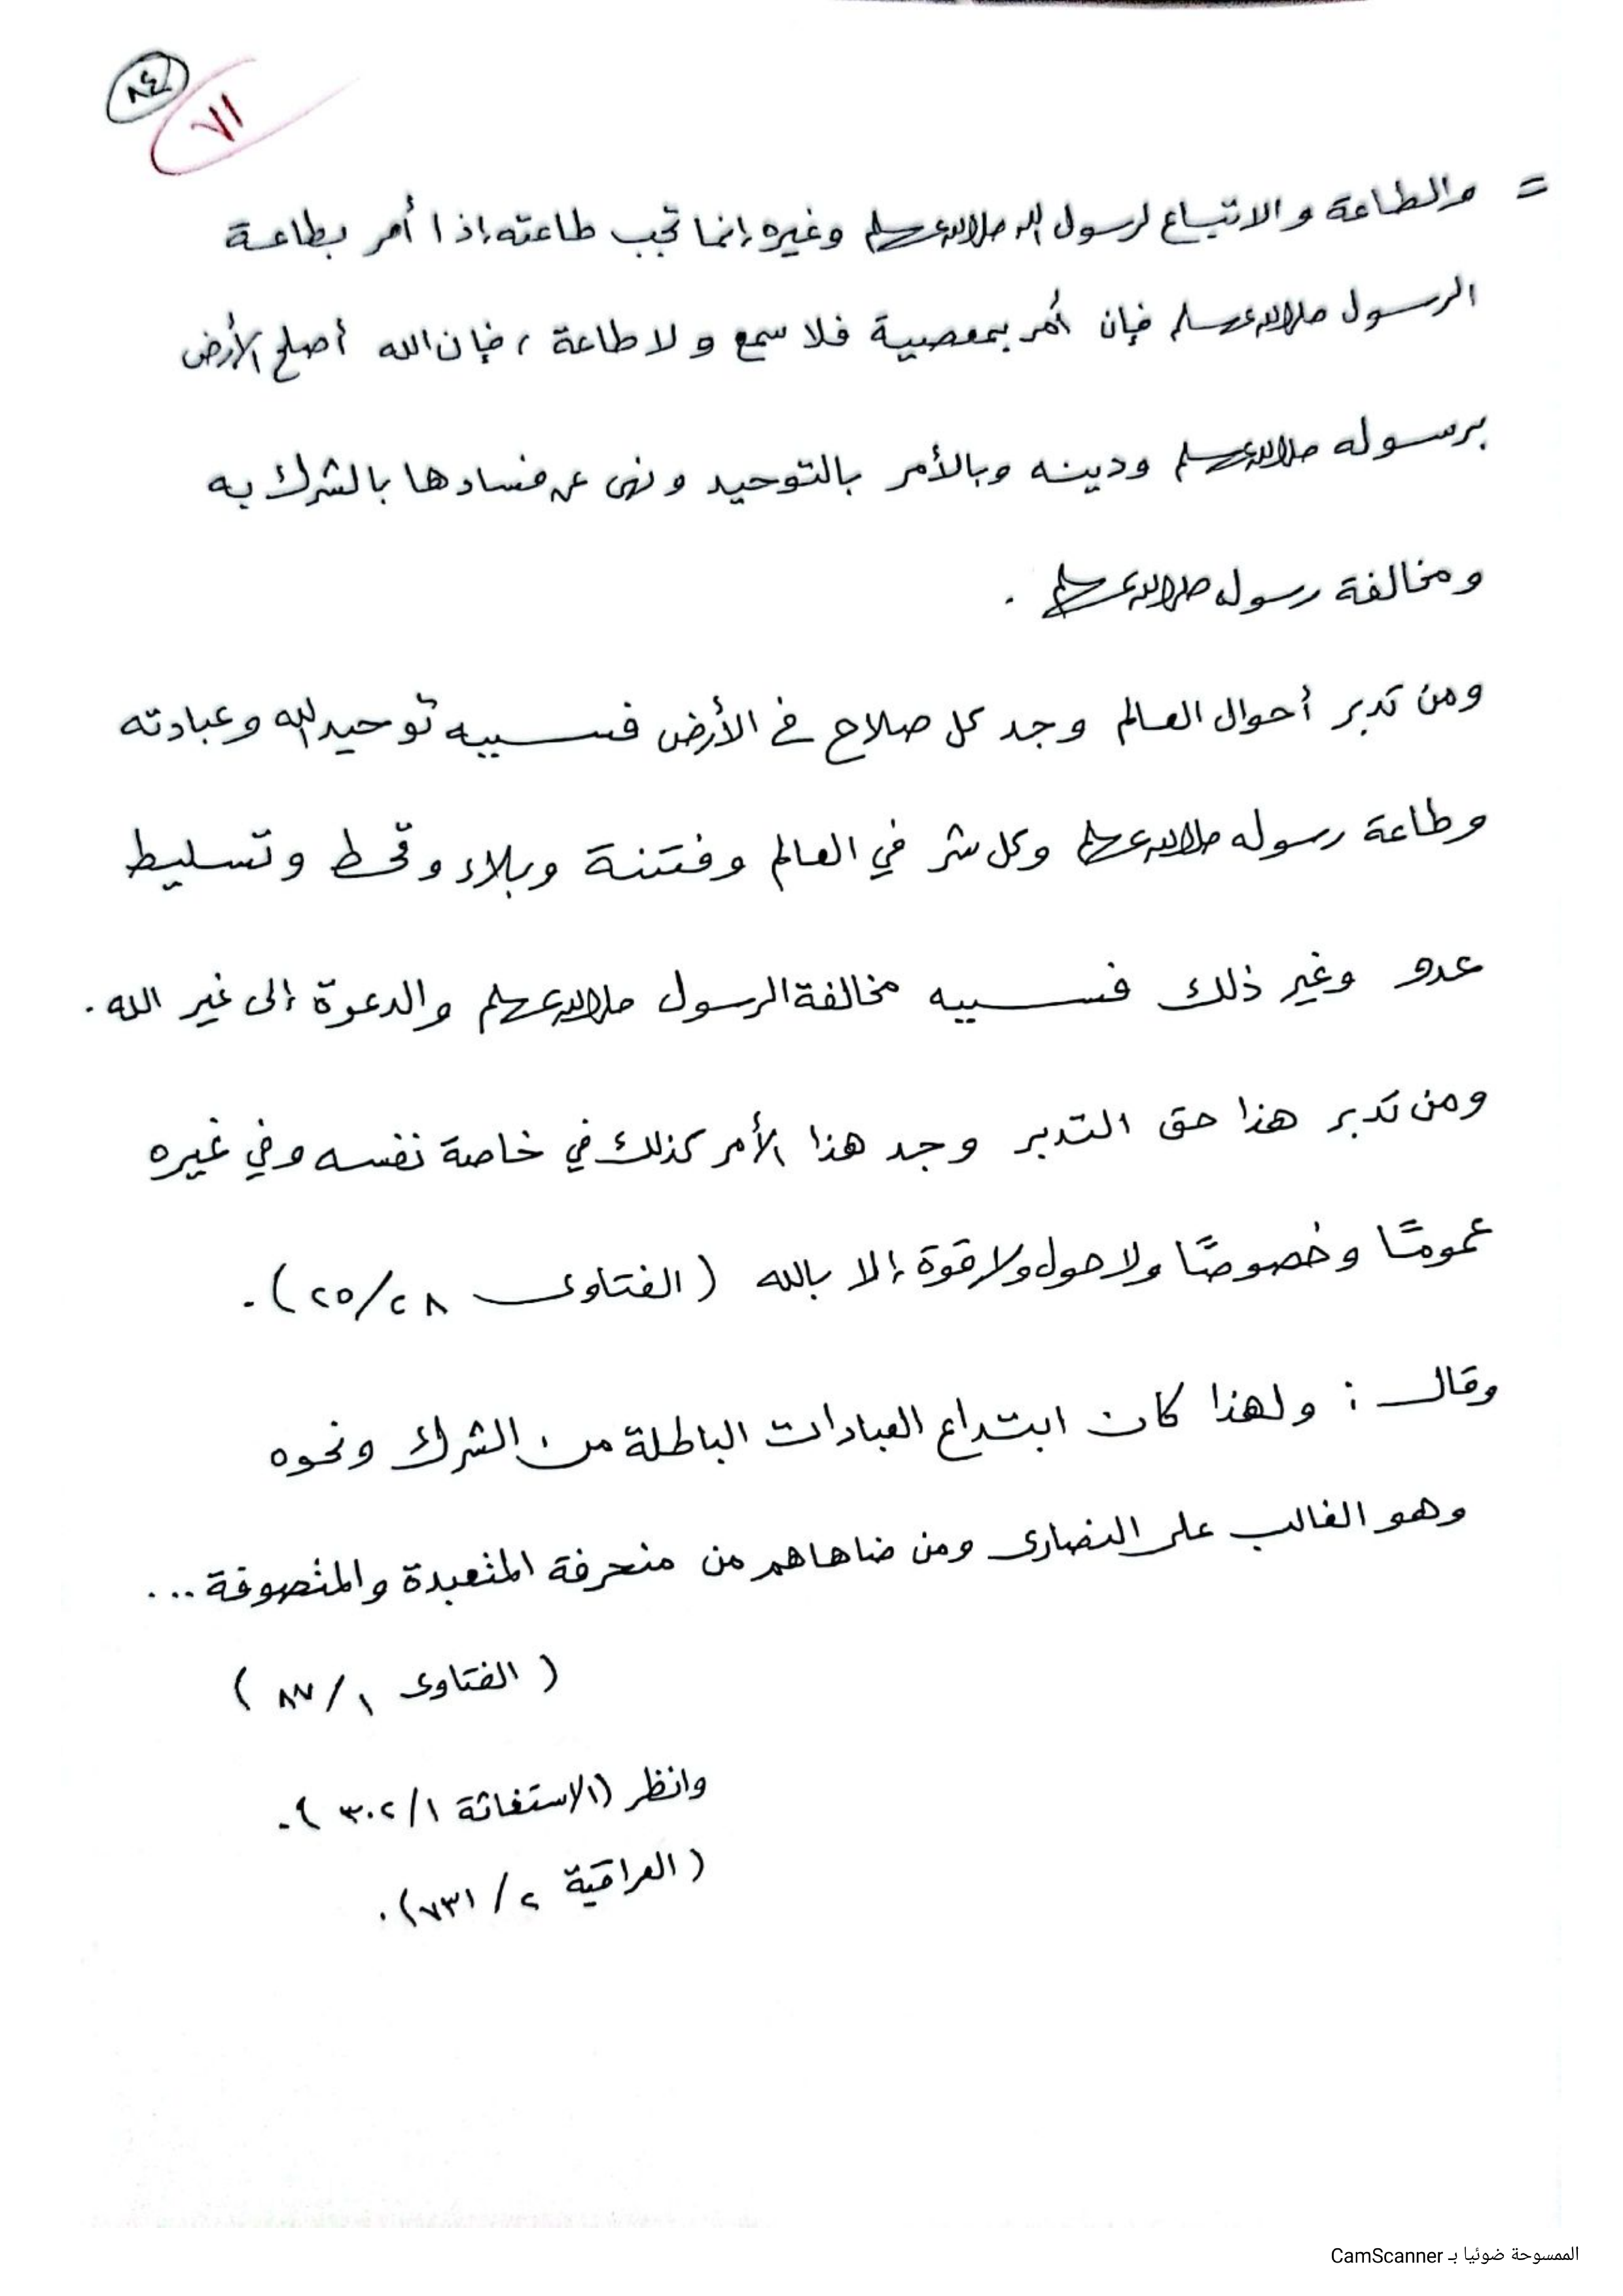 ٨٤
٧١
= والطاعة والاتباع لرسول الله صلى الله عليه وسلم وغيره إنما تجب طاعته إذا أمر بطاعة
الرسول صلى الله عليه وسلم فإن أمر بمعصية فلا سمع ولا طاعة ، فإن الله أصلح الأرض
برسوله صلى الله عليه وسلم ودينه وبالأمر بالتوحيد ونهى عن فسادها بالشرك به
ومخالفة رسوله صلى الله عليه وسلم .
ومن تدبر أحوال العالم وجد كل صلاح في الأرض فسببه توحيد الله وعبادته
وطاعة رسوله صلى الله عليه وسلم وكل شر في العالم وفتنة وبلاء وقحط وتسليط
عدو وغير ذلك فسببه مخالفة الرسول صلى الله عليه وسلم والدعوة إلى غير الله .
ومن تدبر هذا حق التدبر وجد هذا الأمر كذلك في خاصة نفسه وفي غيره
عمومًا وخصوصًا ولا حول ولا قوة إلا بالله ( الفتاوى ٢٥/٢٨ ) .
وقال : ولهذا كان ابتداع العبادات الباطلة من الشرك ونحوه
وهو الغالب على النصارى ومن ضاهاهم من منحرفة المتعبدة والمتصوفة ...
( الفتاوى ١ / ٨٧ )
وانظر ( الاستغاثة ١ / ٣٠٢ ) .
( العراقية ٢ / ٧٣١ ) .
الممسوحة ضوئيا بـ CamScanner